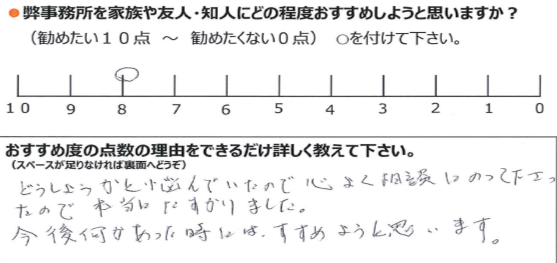 ●弊事務所を家族や友人・知人にどの程度おすすめしようと思いますか？
（勧めたい１０点　～　勧めたくない０点）　○を付けて下さい。
10 9 8 7 6 5 4 3 2 1 0
おすすめ度の点数の理由をできるだけ詳しく教えて下さい。
（スペースが足りなければ裏面へどうぞ）
どうしようかと悩んでいたので心よく相談にのって下さっ
たので本当にたすかりました。
今後何かあった時には、すすめようと思います。